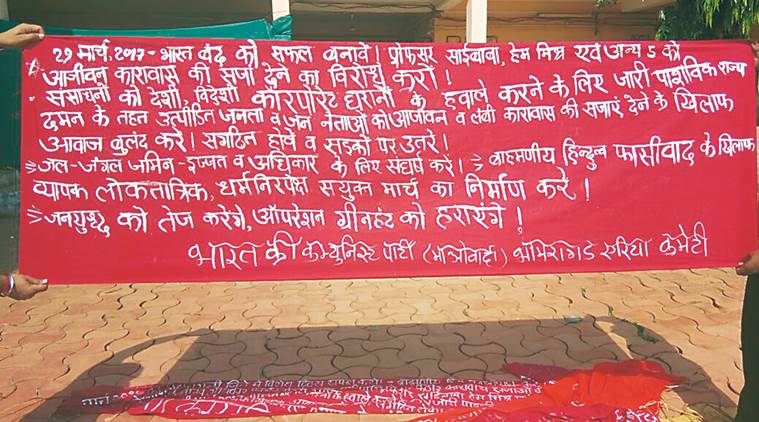 29 मार्च, 2017 - भारत बंद को सफल बनावें! प्रोफसर साईबाबा, हेम मिश्र एवं अन्य 5 को
आजीवन कारावास की सजा देने का विरोध करो!
संसाधनों को देशी, विदेशी कॉरपोरेट घरानों के हवाले करने के लिए जारी पाशविक राज्य
दमन के तहत उत्पीडित जनता व जन नेताओं को आजीवन व लंबी कारावास की सजाएं देने के खिलाफ
आवाज बुलंद करें! संगठित होवें व सड़कों पर उतरें!
जल-जंगल जमिन-इज्जत व अधिकार के लिए संघर्ष करें! ब्राह्मणीय हिन्दुत्व फासीवाद के खिलाफ
व्यापक लोकतांत्रिक, धर्मनिरपेक्ष संयुक्त मार्च का निर्माण करें!
जनयुद्ध को तेज करेंगे, ऑपरेशन ग्रीनहंट को हराएंगे!
भारत की कम्युनिस्ट पार्टी (माओवादी) भामरागड एरिया कमेटी